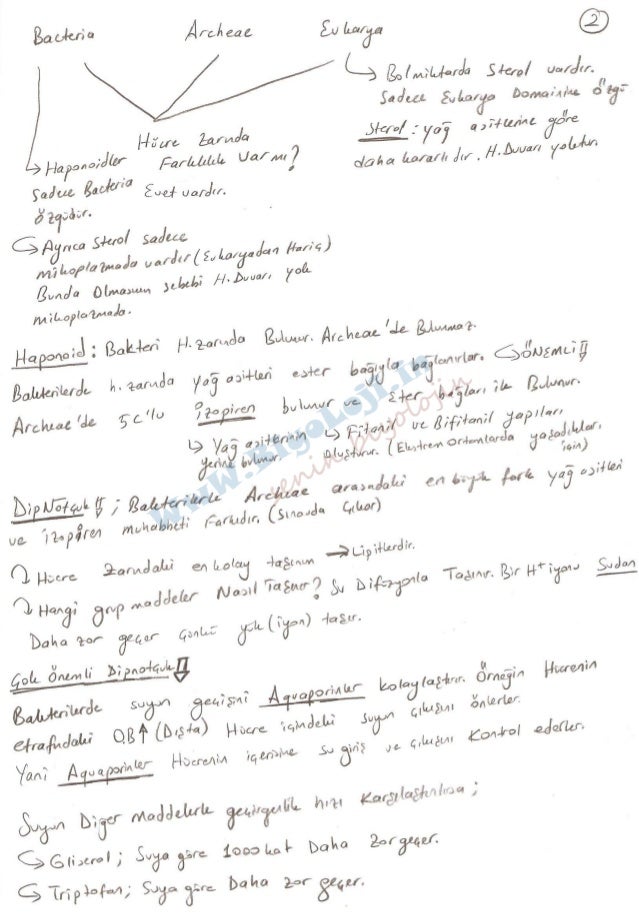 2
Bacteria Archeae Eukarya
Bol miktarda Sterol vardır.
Sadece Eukarya Domainine özgü
Sterol : yağ asitlerine göre
daha kararlıdır. H. Duvarı yoktur.
Hücre Zarında
Farklılık Var mı?
Evet vardır.
Haponoidler
Sadece Bacteria
özgüdür.
Ayrıca Sterol sadece
mikoplazmada vardır (Eukaryadan Hariç)
Bunda Olmasının sebebi H. Duvarı yok
mikoplazmada.
Haponoid : Bakteri H. zarında Bulunur. Archeae'de Bulunmaz.
Bakterilerde h. zarında yağ asitleri ester bağıyla bağlanırlar. ÖNEMLİ !!
Archeae'de 5C'lu İzopiren bulunur ve Eter bağları ile Bulunur.
Yağ asitlerinin yerine bulunur.
Fitanil ve Bifitanil yapıları,
oluşturur. (Ekstrem Ortamlarda yaşadıkları için)
www.BiyoLoji.in
yenin biyolojin
DipNotçuk !! ; Bakterilerle Archeae arasındaki en büyük fark yağ asitleri
ve izopiren muhabbeti Farkıdır. (Sınavda Çıkar)
Hücre zarındaki en kolay taşınım → Lipitlerdir.
Hangi grup maddeler Nasıl Taşınır? Su Difüzyonla Taşınır. Bir H+ iyonu Sudan
Daha zor geçer çünkü yük (iyon) taşır.
Çok Önemli Dipnotçuk !!
Bakterilerde suyun geçişini Aquaporinler kolaylaştırır. Örneğin Hücrenin
etrafındaki O.B↑ (Dışta) Hücre içindeki suyun çıkışını önlerler.
Yani Aquaporinler Hücrenin içerisine su giriş ve çıkışını Kontrol ederler.
Suyun Diğer maddelerle geçirgenlik hızı Karşılaştırılırsa ;
Gliserol ; Suya göre 1000 kat Daha Zor geçer.
Triptofan ; Suya göre Daha zor geçer.